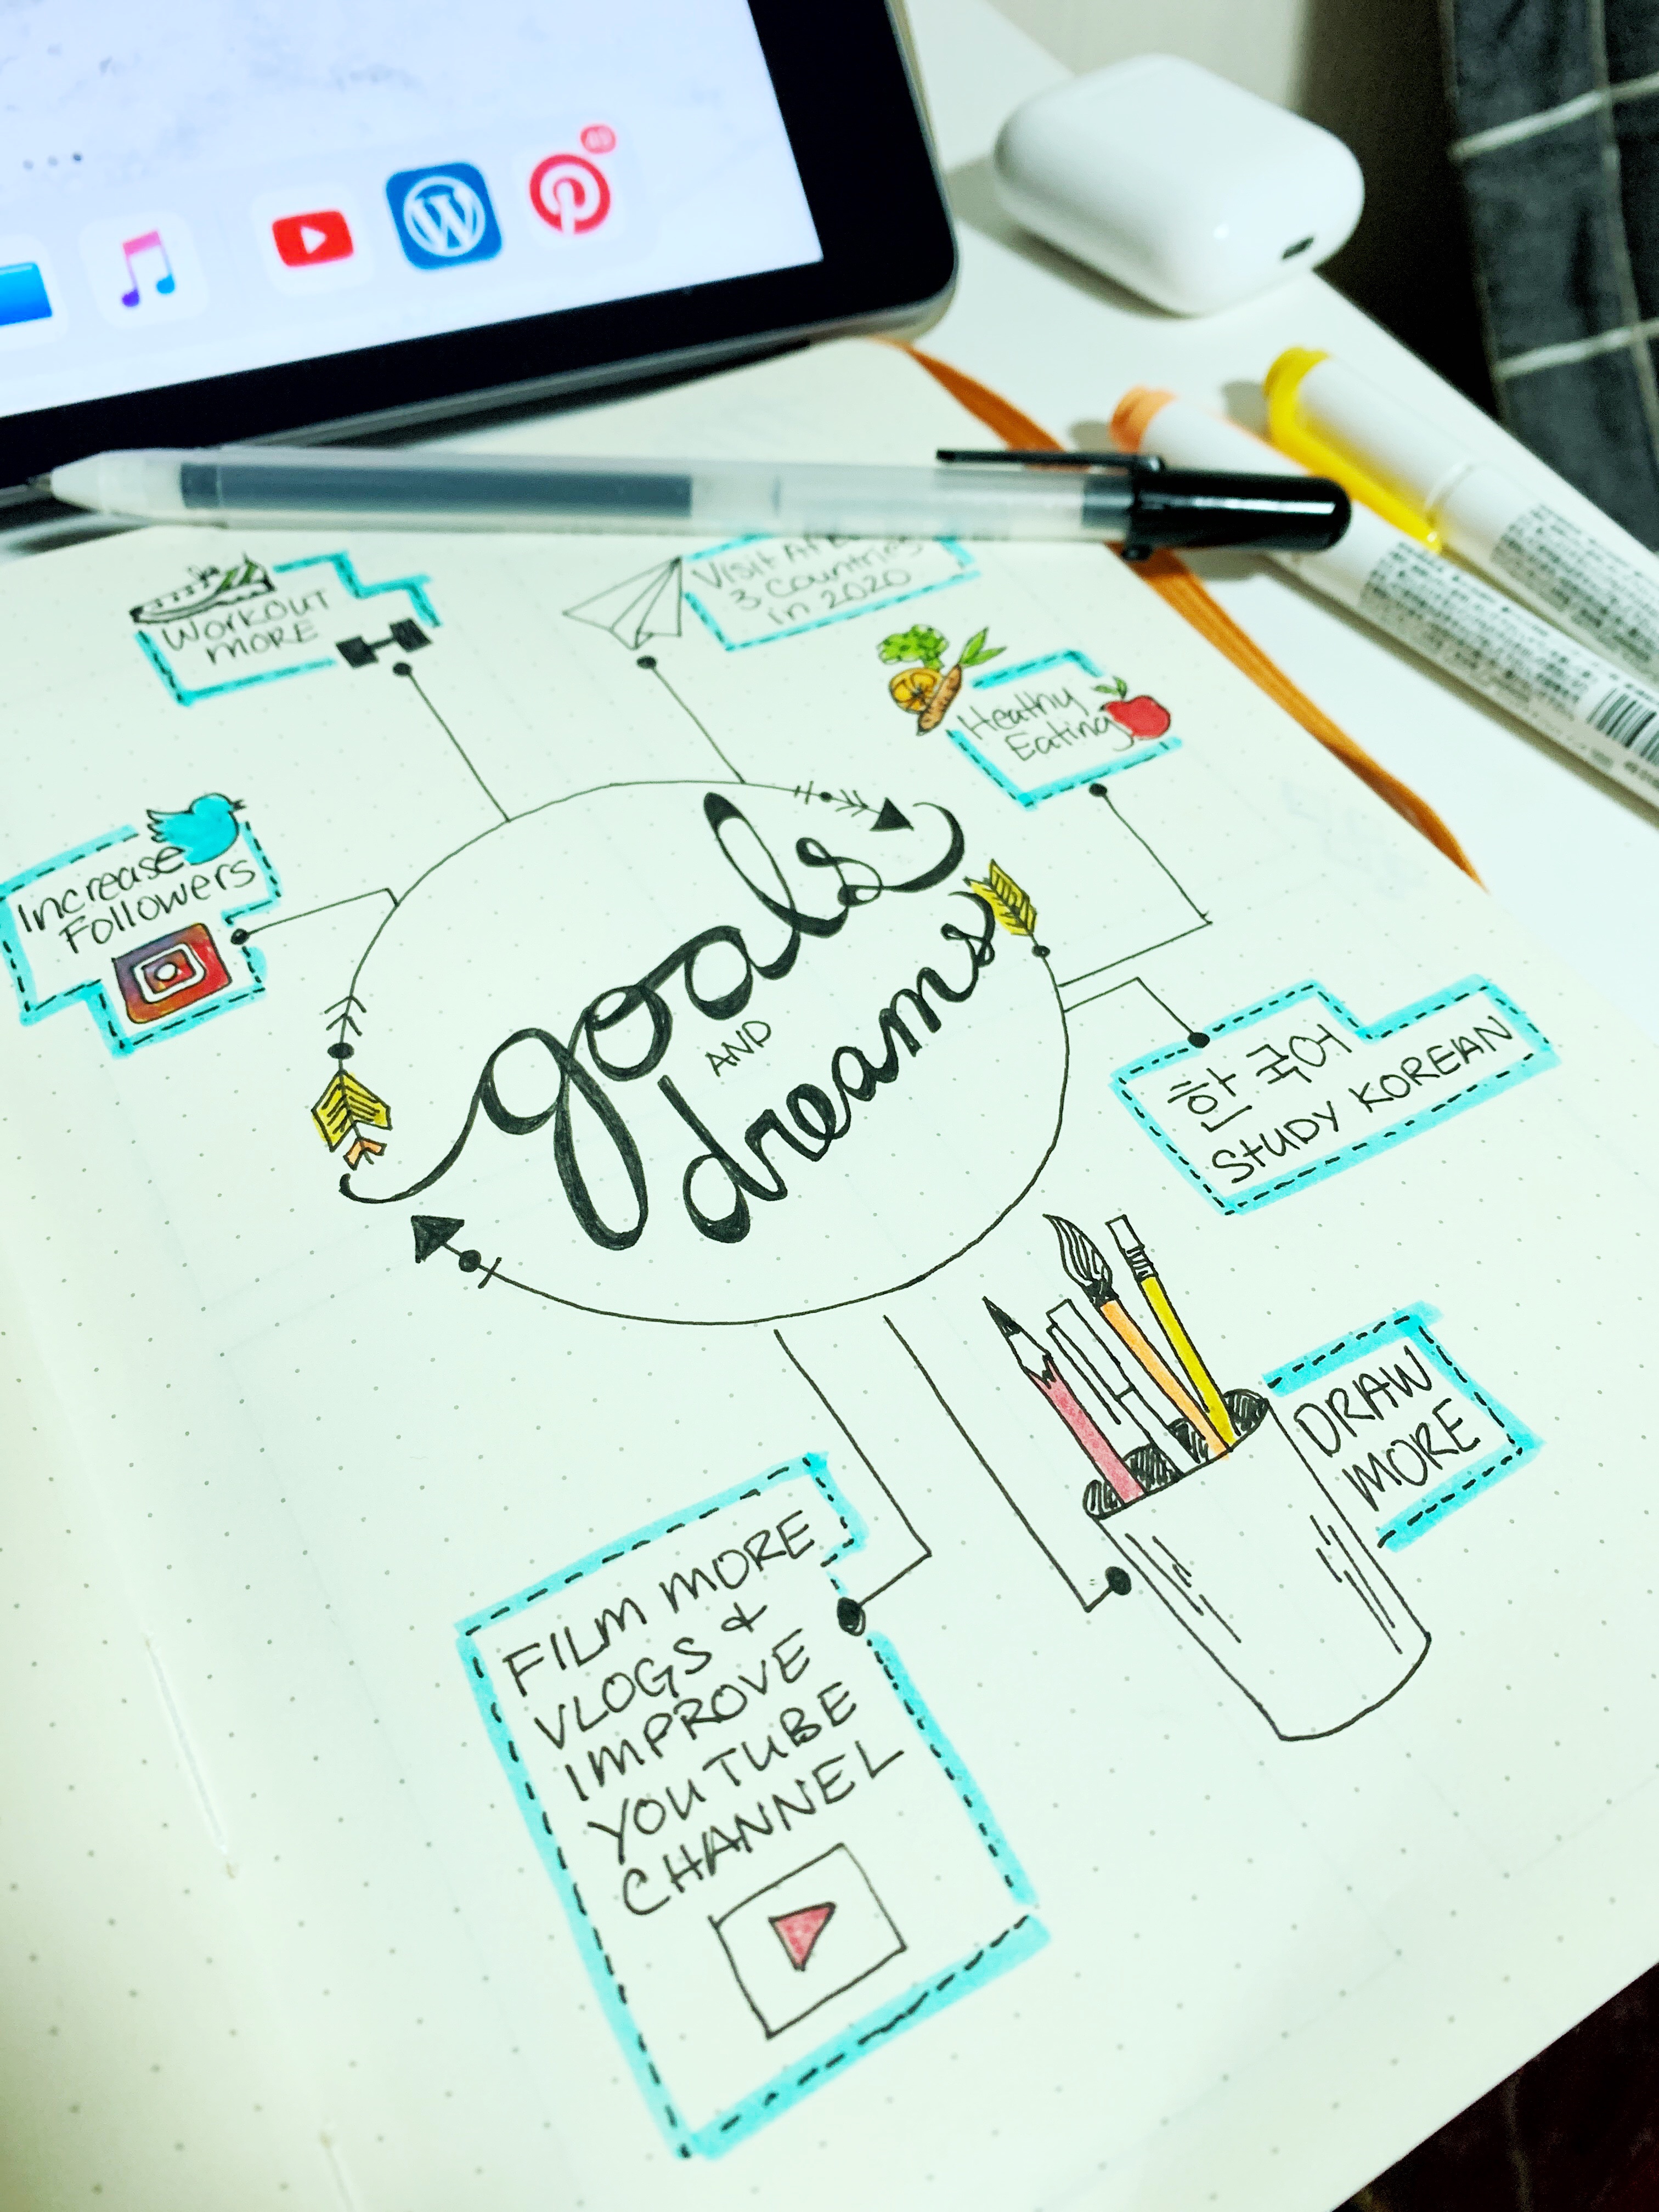 49
WORKOUT
MORE
Visit
3 Countries
in 2020
Heathy
Eating
Increase
Followers
goals
AND
dreams
한국어
STUDY KOREAN
DRAW
MORE
FILM MORE
VLOGS &
IMPROVE
YOUTUBE
CHANNEL